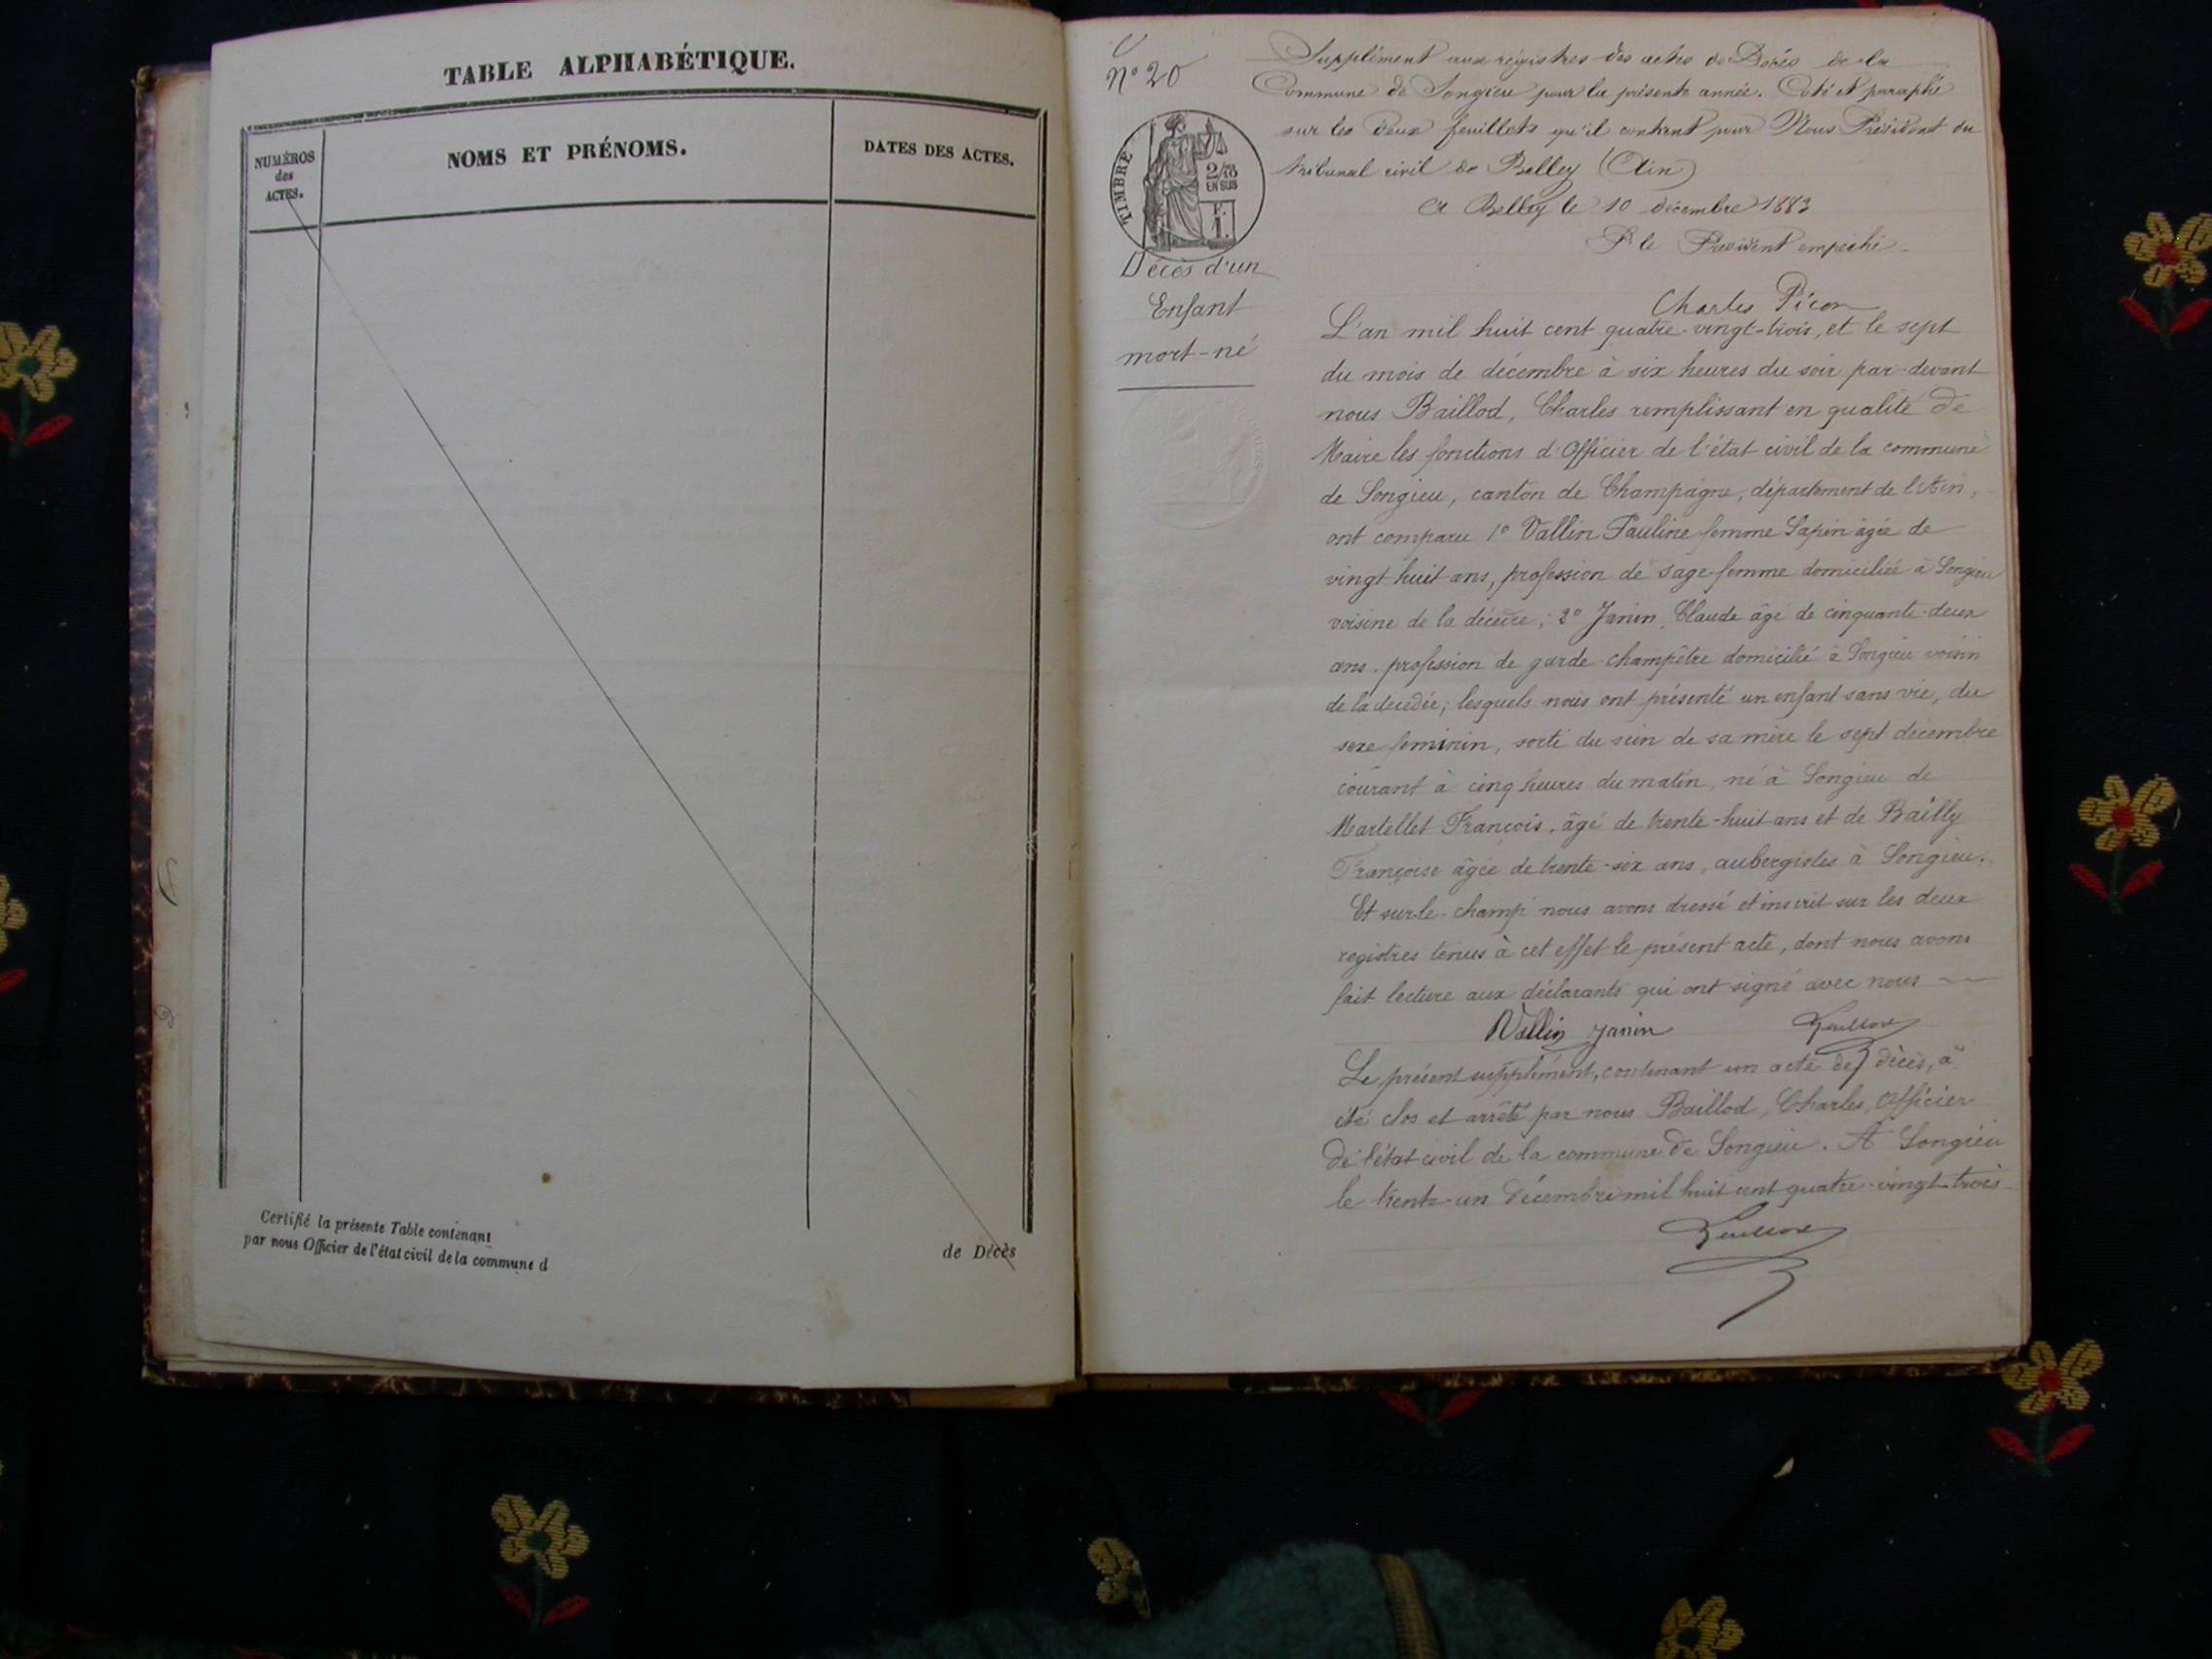 TABLE ALPHABÉTIQUE.
NUMÉROS
des
ACTES.
NOMS ET PRÉNOMS.
DATES DES ACTES.
Certifié la présente Table contenant
de Décès
par nous Officier de l'état civil de la commune d
N° 20
Supplément aux régistres des actes de Décès de la
Commune de Songieu pour la présente année. Coté et paraphé
sur les deux feuillets qu'il contient pour Nous Président du
tribunal civil de Belley (Ain)
A Belley le 10 décembre 1883
Pr le Président empêché
Charles Picon
TIMBRE
2/10
EN SUS
F.
1.
Décès d'un
Enfant
mort-né
L'an mil huit cent quatre-vingt-trois, et le sept
du mois de décembre à six heures du soir par-devant
nous Baillod, Charles remplissant en qualité de
Maire les fonctions d'Officier de l'état civil de la commune
de Songieu, canton de Champagne, département de l'Ain,
ont comparu 1° Vallin Pauline femme Sapin âgée de
vingt-huit ans, profession de sage-femme domiciliée à Songieu
voisine de la ; 2° Janin, Claude âgé de cinquante-deux
ans, profession de garde-champêtre domicilié à Songieu voisin
de la décédée; lesquels nous ont présenté un enfant sans vie, du
sexe féminin, sorti du sein de sa mère le sept décembre
courant à cinq heures du matin, né à Songieu de
Martellet François, âgé de trente-huit ans et de Bailly
Françoise âgée de trente-six ans, aubergistes à Songieu.
Et sur-le-champ nous avons dressé et inscrit sur les deux
registres tenus à cet effet le présent acte, dont nous avons
fait lecture aux déclarants qui ont signé avec nous
Vallin Janin Baillod
Le présent supplément, contenant un acte de décès, a
été clos et arrêté par nous Baillod, Charles, Officier
de l'état civil de la commune de Songieu. A Songieu
le trente-un Décembre mil huit cent quatre-vingt-trois
Baillod